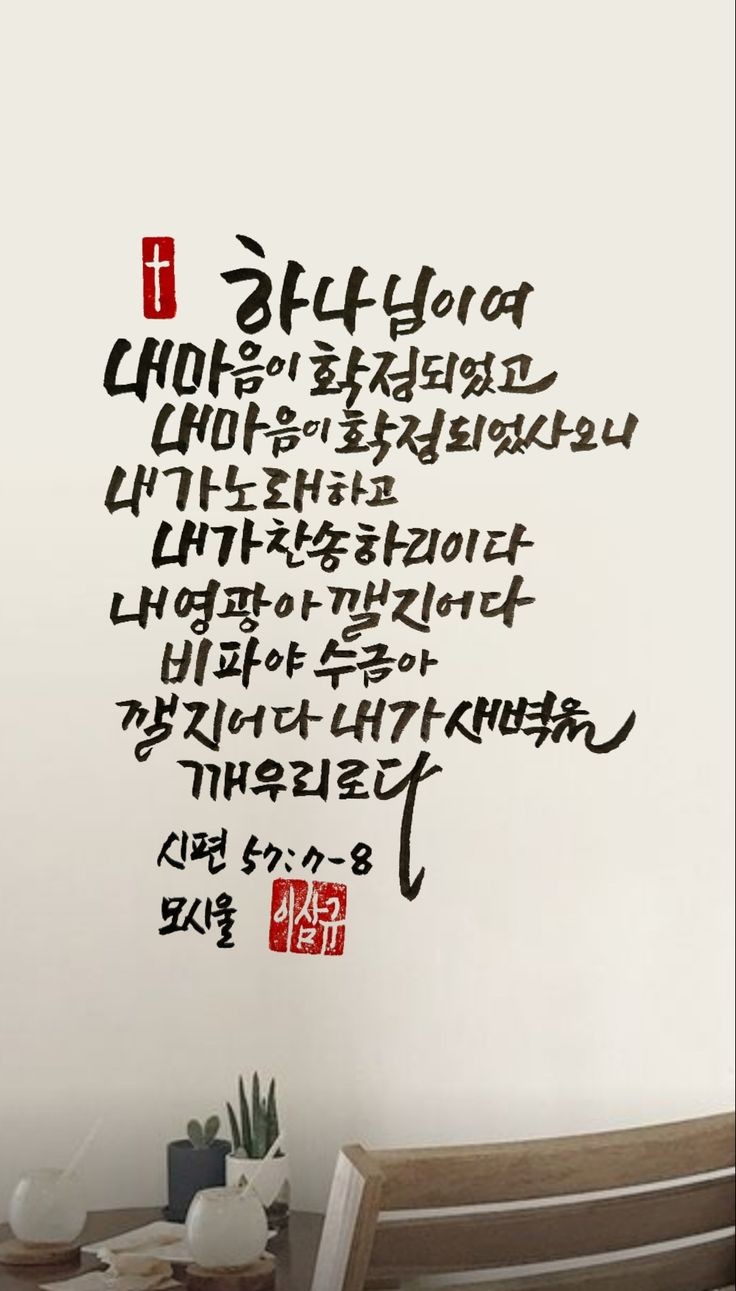 하나님이여
내 마음이 확정되었고
내 마음이 확정되었사오니
내가 노래하고
내가 찬송하리이다
내 영광아 깰지어다
비파야 수금아
깰지어다 내가 새벽을
깨우리로다
시편 57:7-8
모시울
이삼규